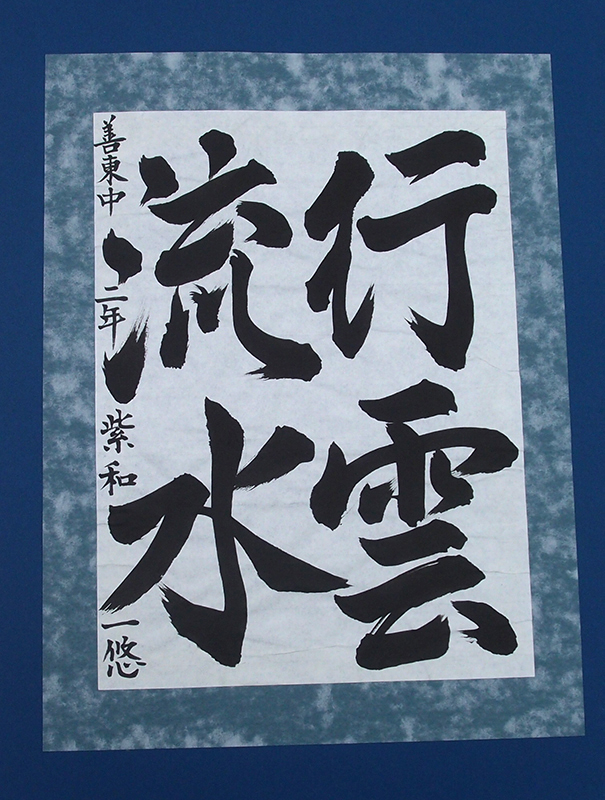 行雲
流水
善東中 二年 紫和 一悠